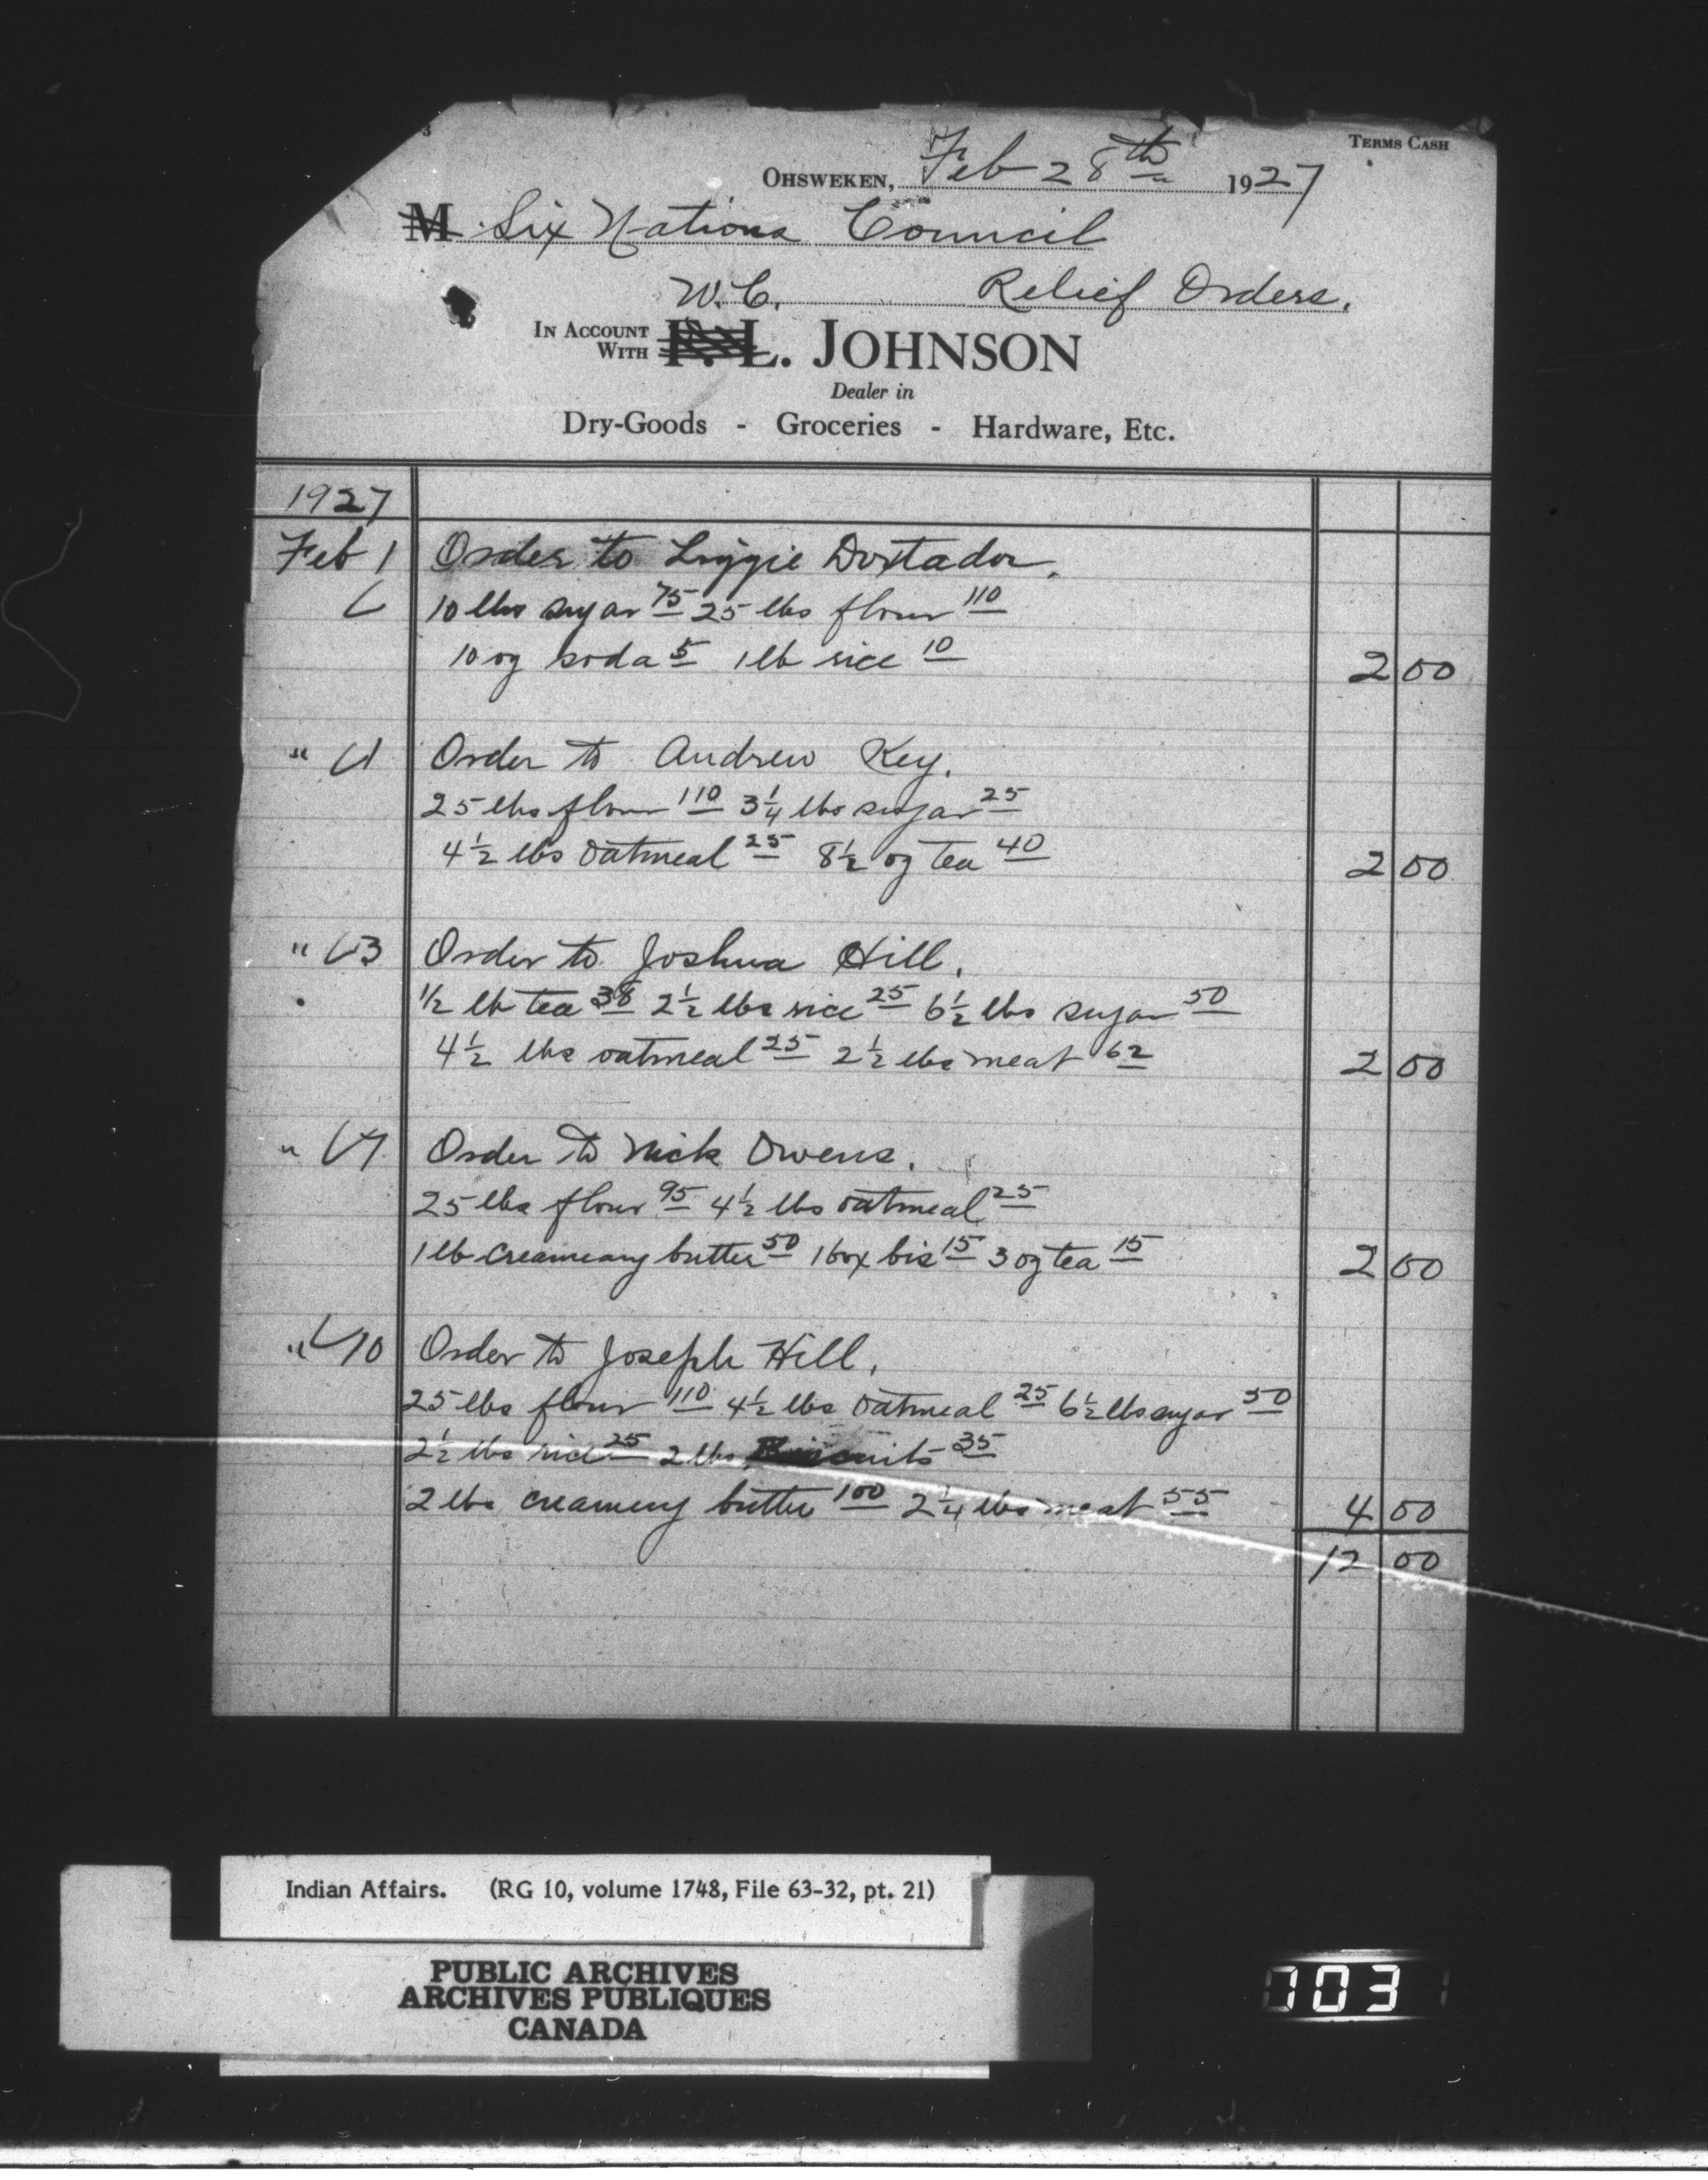 TERMS CASH
OHSWEKEN, Feb 28th 1927
M Six Nations Council
W.C. Relief Orders.
IN ACCOUNT WITH F. L. JOHNSON
Dealer in
Dry-Goods - Groceries - Hardware, Etc.
1927
Feb 1 Order to Liggie Doxtador.
10 lbs sugar 75 25 lbs flour 110
10 oz soda 5 1 lb rice 10 2 00
" 1 Order to Andrew Key.
25 lbs flour 110 3 1/4 lbs sugar 25
4 1/2 lbs oatmeal 25 8 1/2 oz tea 40 2 00
" 3 Order to Joshua Hill.
1/2 lb tea 38 2 1/2 lbs rice 25 6 1/2 lbs sugar 50
4 1/2 lbs oatmeal 25 2 1/2 lbs meat 62 2 00
" 7 Order to Nick Owens.
25 lbs flour 95 4 1/2 lbs oatmeal 25
1 lb creameany butter 50 1 box bis 15 3 oz tea 15 2 00
" 10 Order to Joseph Hill.
25 lbs flour 110 4 1/2 lbs oatmeal 25 6 1/2 lbs sugar 50
2 1/2 lbs rice 25 2 lbs Biscuits 35
2 lbs creamery butter 100 2 1/4 lbs meat 55 4 00
12 00
Indian Affairs. (RG 10, volume 1748, File 63-32, pt. 21)
PUBLIC ARCHIVES
ARCHIVES PUBLIQUES
CANADA
703